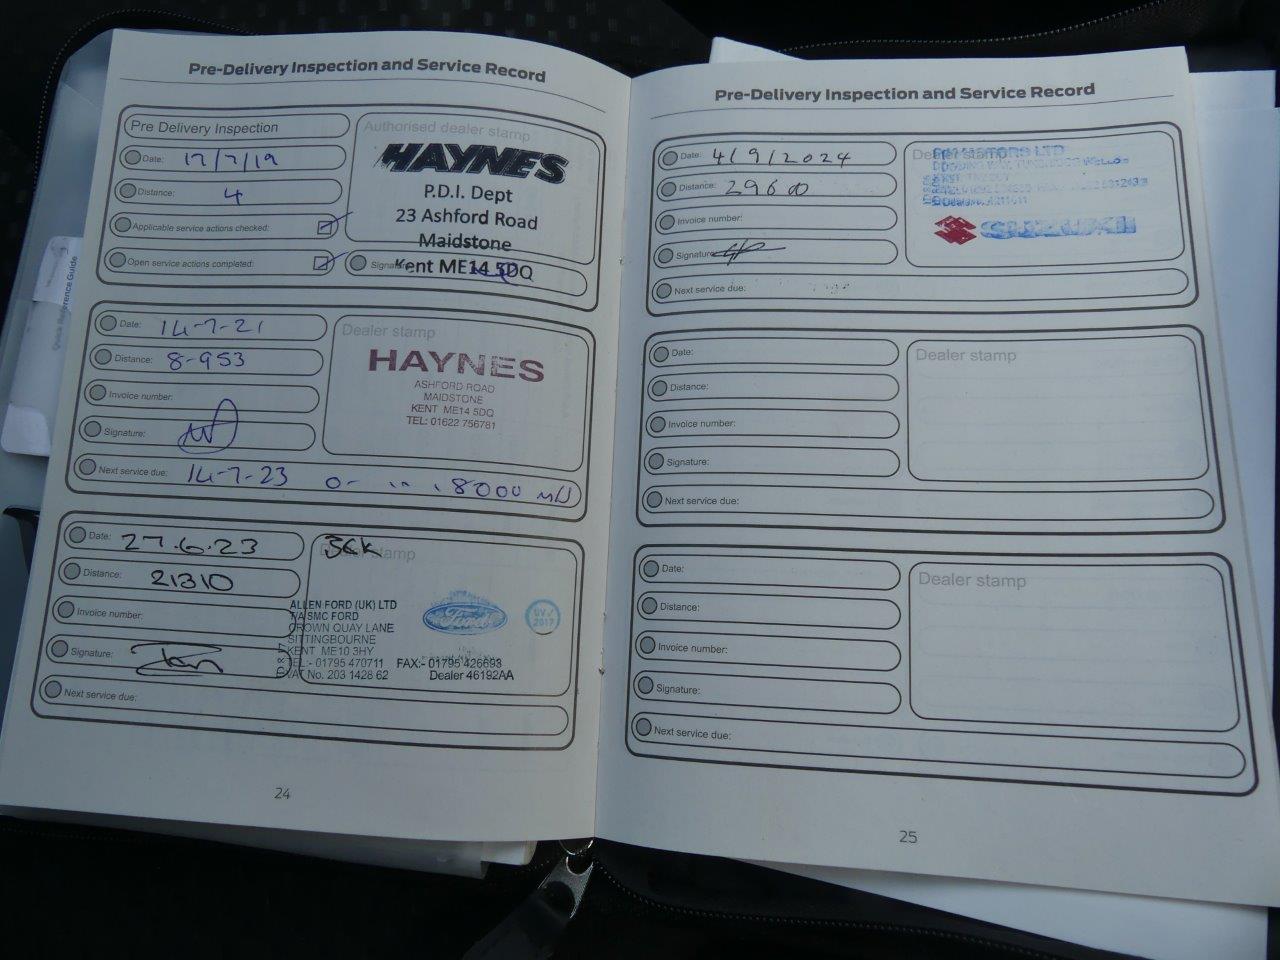 Pre-Delivery Inspection and Service Record
Pre Delivery Inspection
Date: 17/7/19
Distance: 4
Applicable service actions checked:
Open service actions completed:
Authorised dealer stamp
HAYNES
P.D.I. Dept
23 Ashford Road
Maidstone
Kent ME14 5DQ
Signature:
Date: 14-7-21
Distance: 8-953
Invoice number:
Signature:
Next service due: 14-7-23 18000
Dealer stamp
HAYNES
ASHFORD ROAD
MAIDSTONE
KENT ME14 5DQ
TEL: 01622 756781
Date: 27.6.23
Distance: 21310
Invoice number:
Signature:
Next service due:
Dealer stamp
ALLEN FORD (UK) LTD
T/A SMC FORD
CROWN QUAY LANE
SITTINGBOURNE
KENT ME10 3HY
TEL:- 01795 470711 FAX:- 01795 426693
VAT No. 203 1428 62 Dealer 46192AA
Ford
24
Pre-Delivery Inspection and Service Record
Date: 4/9/2024
Distance: 29600
Invoice number:
Signature:
Next service due:
Dealer stamp
MOTORS LTD
SUZUKI
Date:
Distance:
Invoice number:
Signature:
Next service due:
Dealer stamp
Date:
Distance:
Invoice number:
Signature:
Next service due:
Dealer stamp
25
Quick Reference Guide